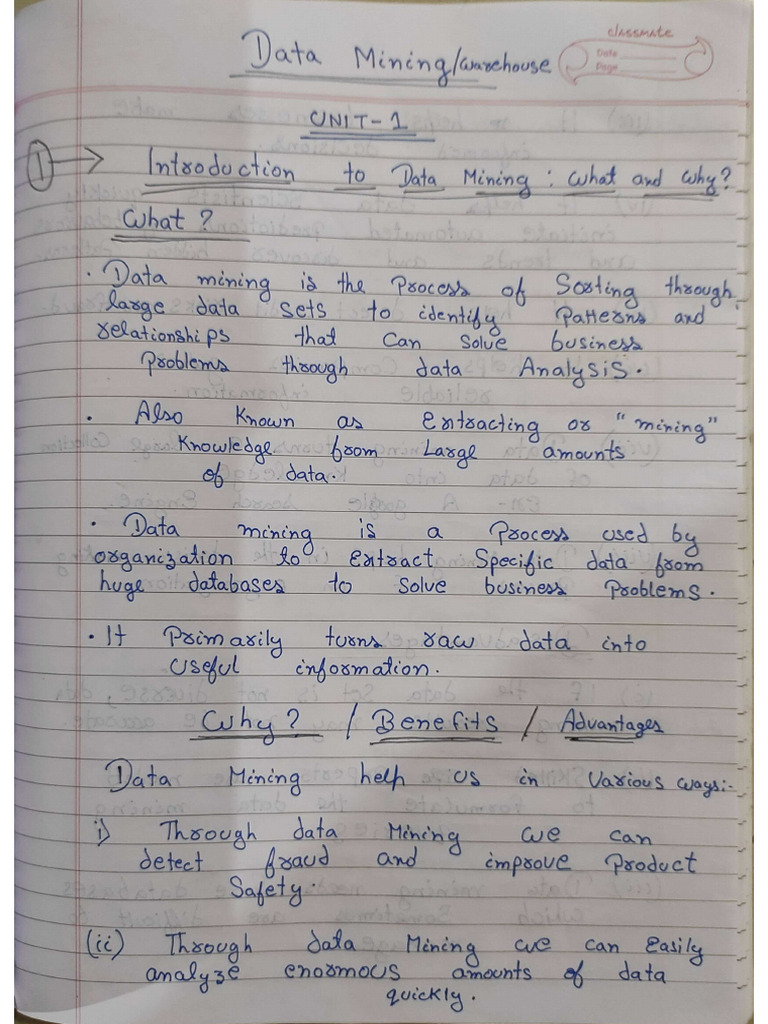 classmate
Date
Page
Data Mining/warehouse
UNIT-1
1 → Introduction to Data Mining: What and Why?
What?
• Data mining is the Process of Sorting through
large data sets to identify Patterns and
relationships that can solve business
Problems through data Analysis.
• Also Known as Extracting or "mining"
Knowledge from Large amounts
of data.
• Data mining is a Process used by
organization to Extract Specific data from
huge databases to solve business Problems.
• It Primarily turns raw data into
useful information.
Why? / Benefits / Advantages
Data Mining help us in Various ways:-
i) Through data Mining we can
detect fraud and improve Product
Safety.
(ii) Through data Mining we can Easily
analyze enormous amounts of data
quickly.